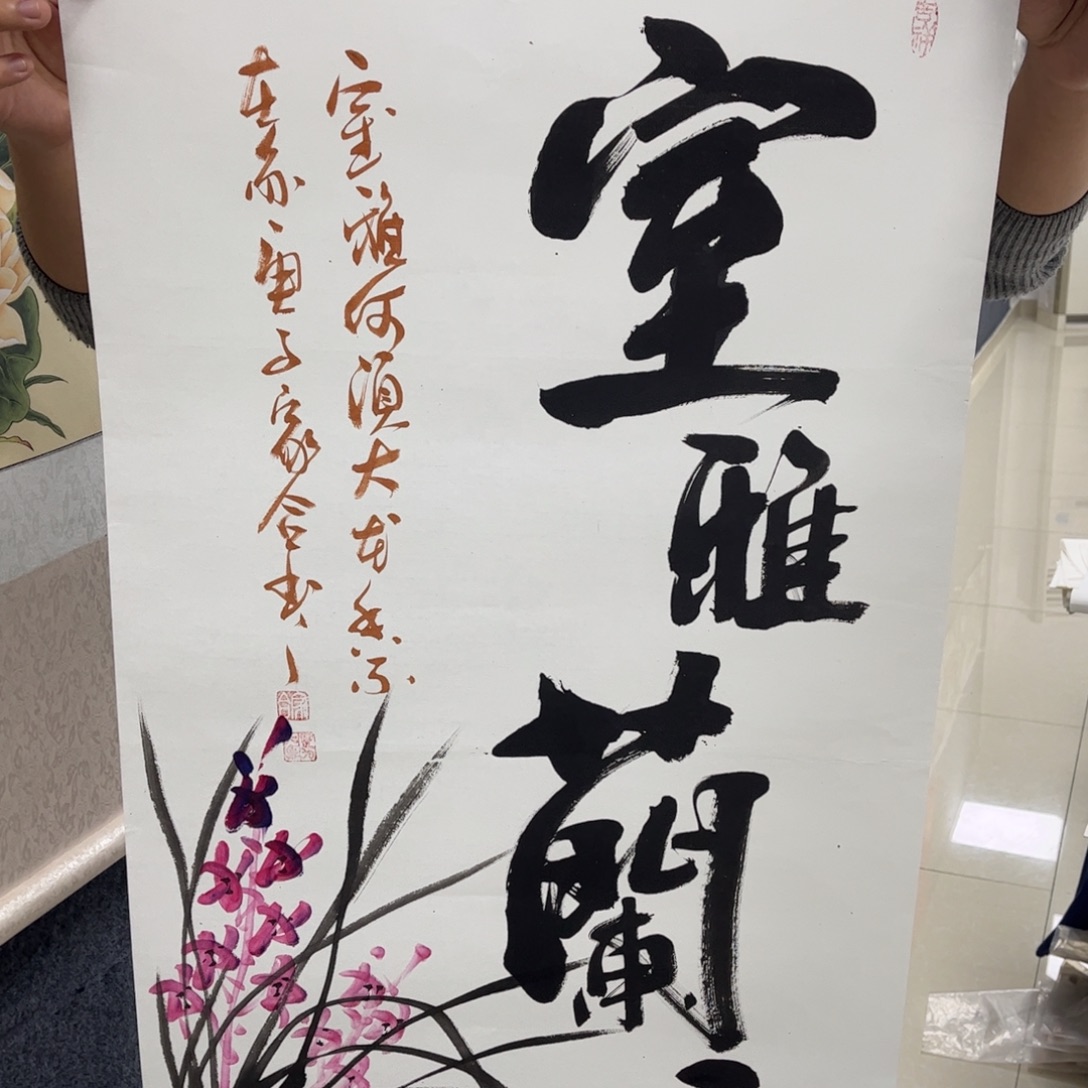 室雅蘭
室雅何須大花香不
在多庚子家合书